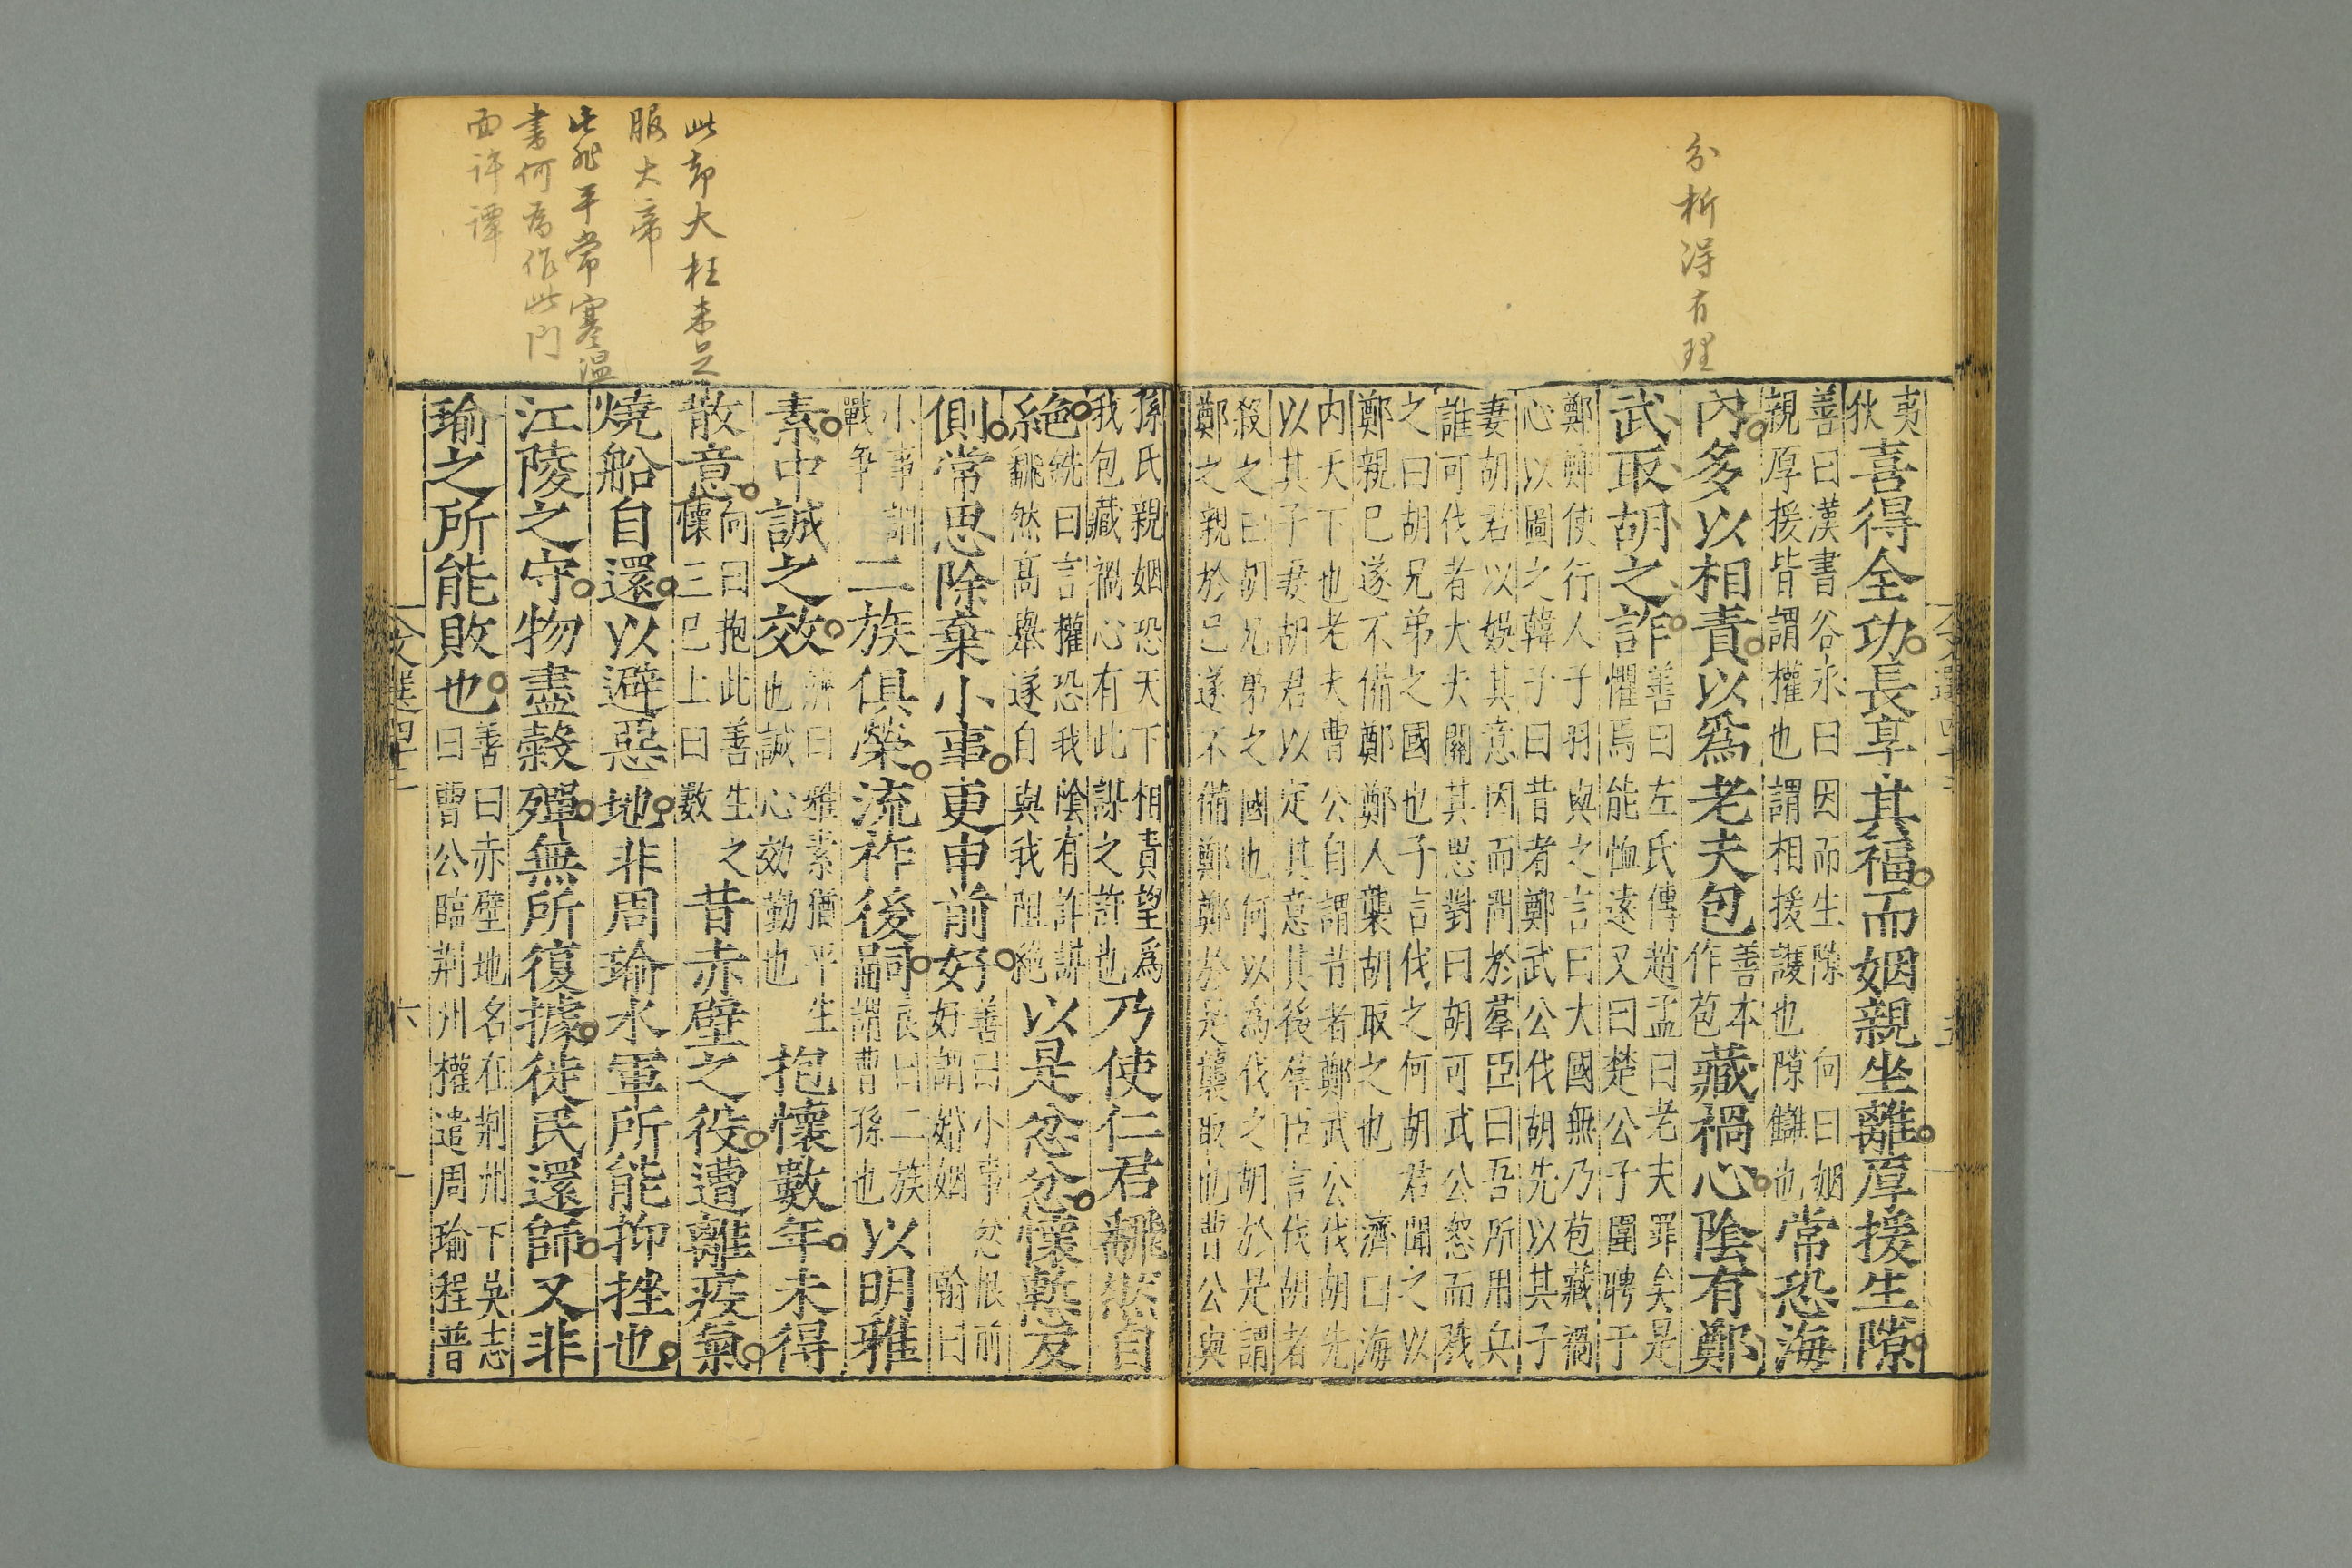 分析得有理
夷狄喜得全功長享其福而姻親坐離厚援生隙
善曰漢書谷永曰因而生隙 向曰姻
親厚援皆謂權也謂相援護也隙讎也
常恐海
內多以相責以爲老夫包善本作苞藏禍心陰有鄭
武取胡之詐
善曰左氏傳趙孟曰老夫罪矣是
懼焉能恤遠又曰楚公子圍聘于
鄭鄭使行人子羽與之言曰大國無乃苞藏禍
心以圖之韓子曰昔者鄭武公伐胡先以其子
妻胡君以娛其意因而問於羣臣曰吾所用兵
誰可伐者大夫關其思對曰胡可武公怒而戮
之曰胡兄弟之國也子言伐之何胡君聞之以
鄭親已遂不備鄭鄭人襲胡取之也 濟曰海
内天下也老夫曹公自謂昔者鄭武公伐胡先
以其子妻胡君以定其意其後羣臣言伐胡者
殺之曰胡兄弟之國也何以為伐之胡於是謂
鄭之親於已遂不備鄭鄭於是襲取也曹公與
此却大枉未足
服大帝
此非平常寒温
書何為作此門
面許譚
孫氏親姻恐天下相責望爲
我包藏禍心有此謀之詐也
乃使仁君翻然自
絕
銑曰言權恐我陰有詐謀
翻然高舉遂自與我阻絶
以是忿忿懷慙反
側常思除棄小事更申前好
善曰小事忿恨前
好謂婚姻 翰曰
小事謂
戰爭
二族俱榮流祚後嗣
良曰二族
謂曹孫也
以明雅
素中誠之效
濟曰雅素猶平生
也誠心効勤也
抱懷數年未得
散意
向曰抱此善生之
懷三已上曰數
昔赤壁之役遭離疫氣
燒船自還以避惡地非周瑜水軍所能抑挫也
江陵之守物盡穀殫無所復據徙民還師又非
瑜之所能敗也
善曰赤壁地名在荆州下吳志
曰曹公臨荆州權遣周瑜程普
六